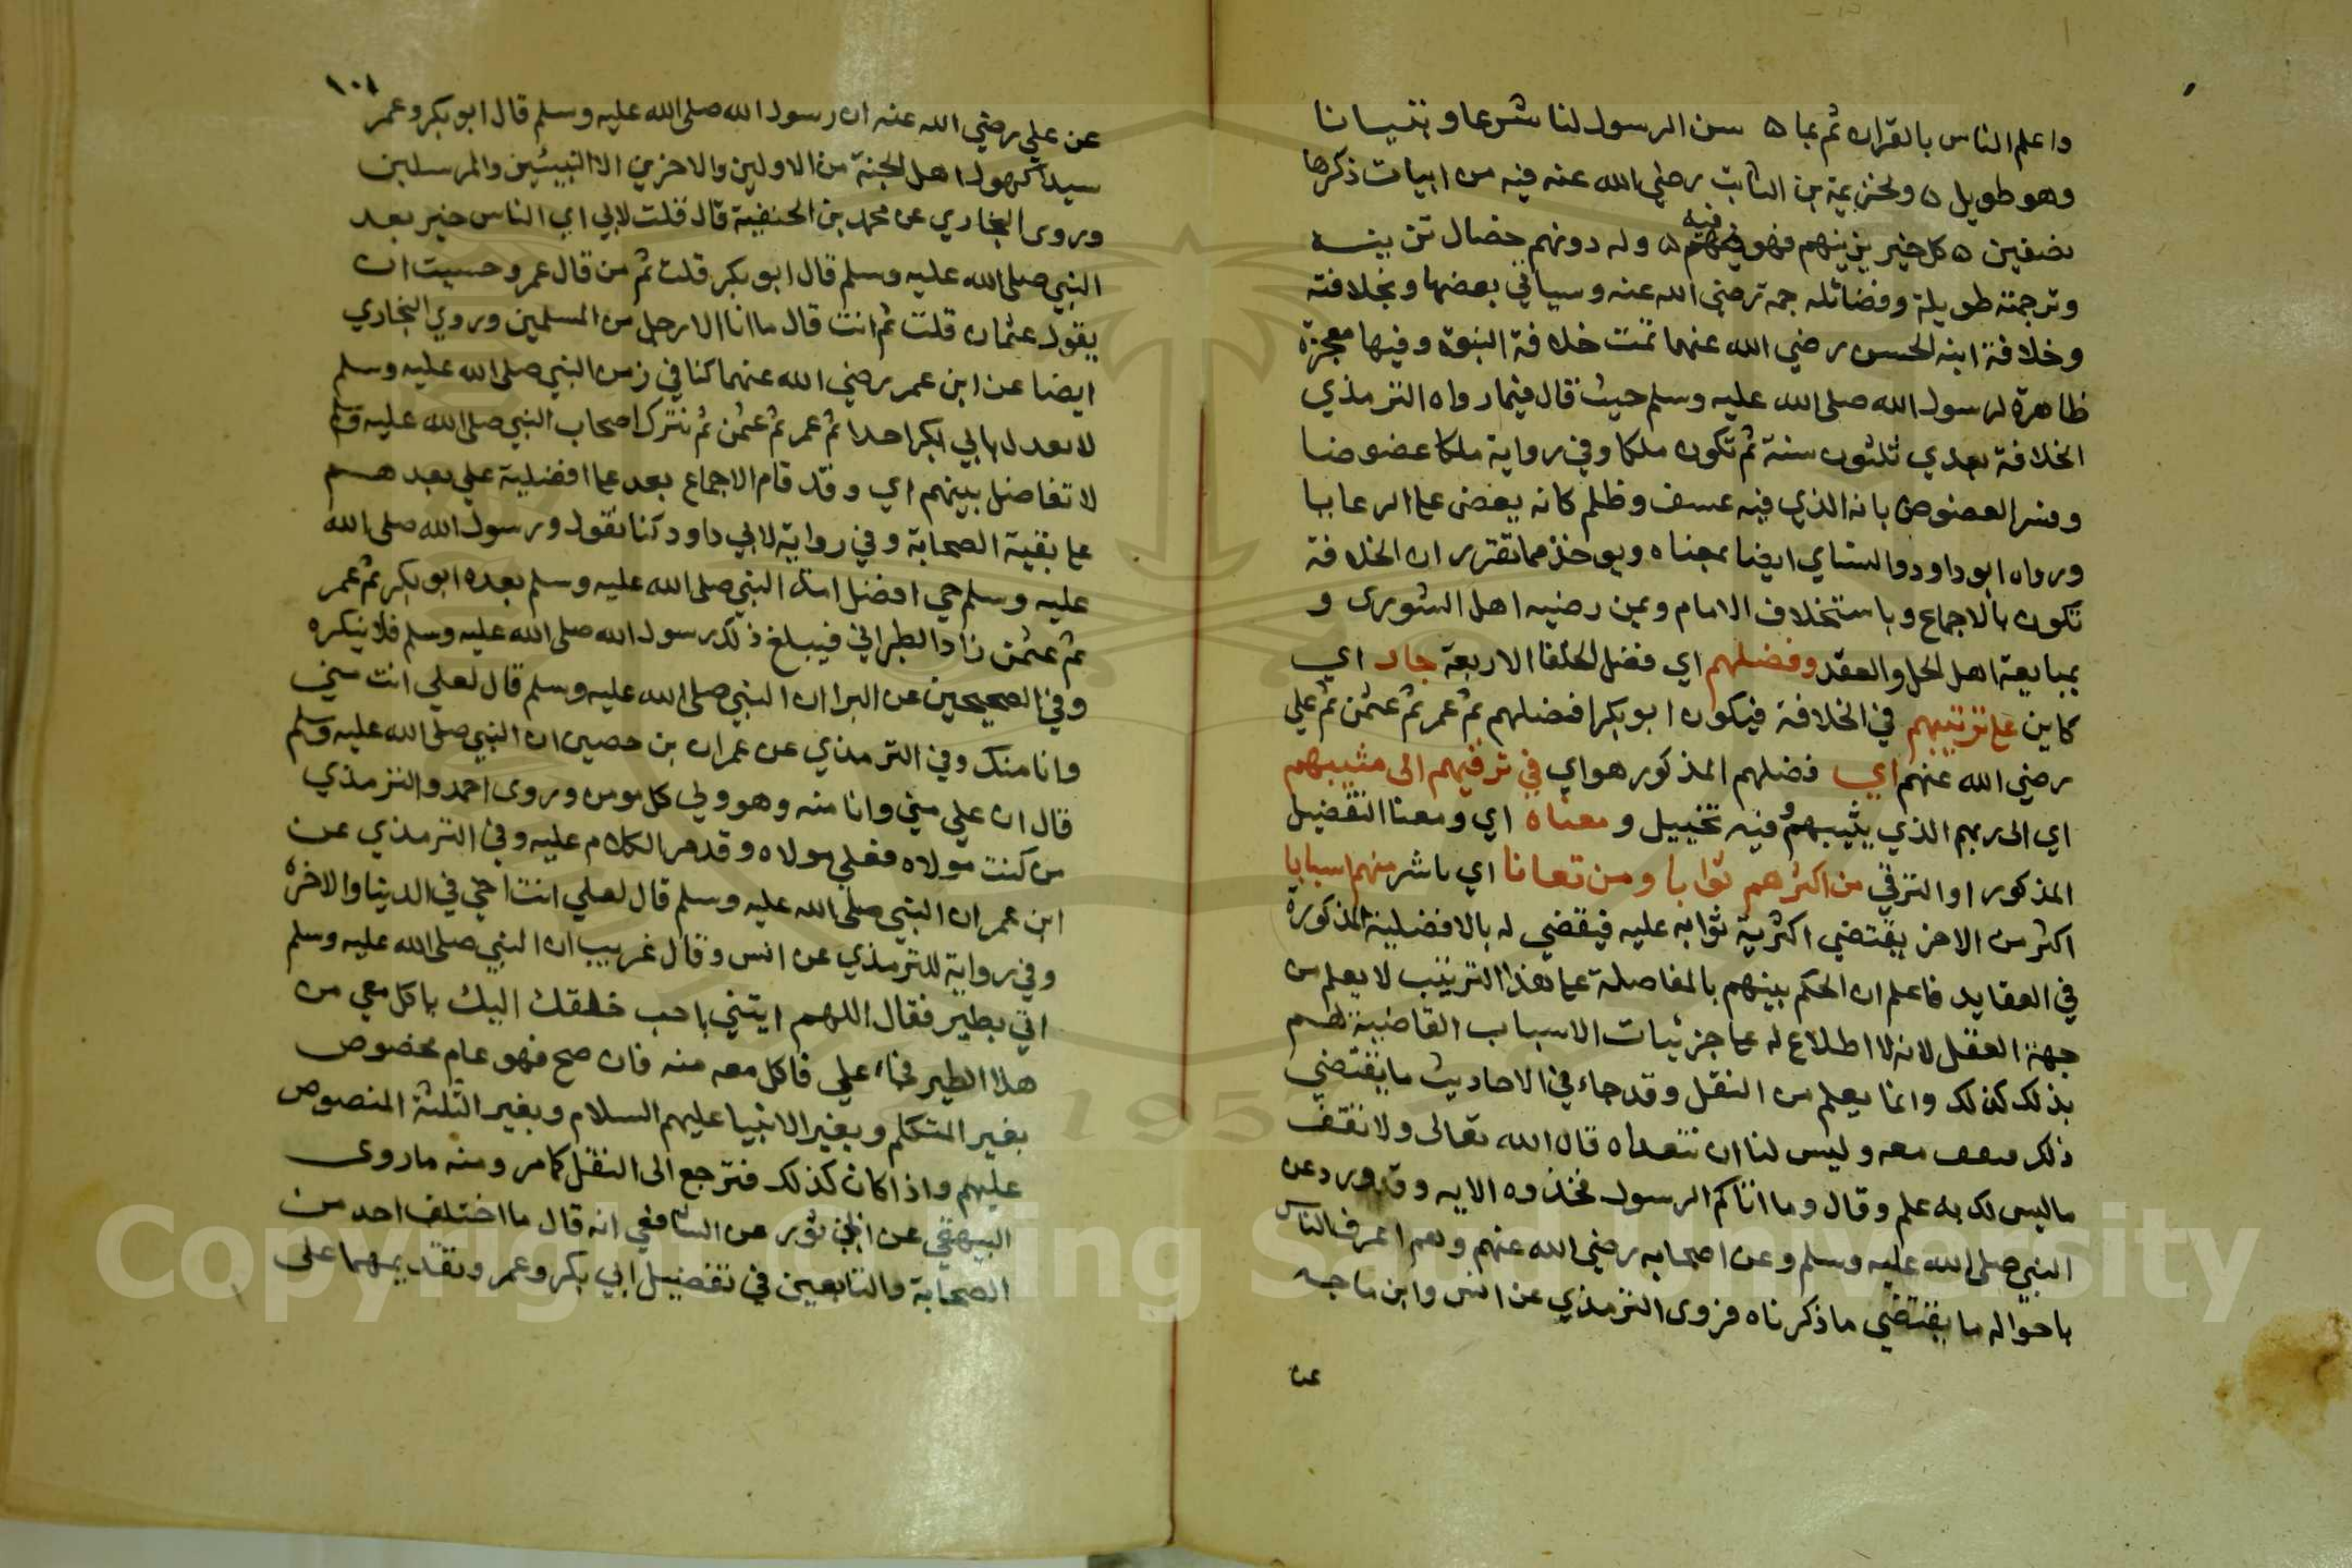 واعلم الناس بالقران ثم بما ٥ سن الرسول لنا شرعا وتبيانا
وهو طويل ٥ ولخزيمة بن الثابت رضي الله عنه فيه من ابيات ذكرها
بصفين ٥ كل خير يزينهم فهو فيه ٥ وله دونهم خصال تزينه
وترجمته طويلة وفضائله جمة رضي الله عنه وسياتي بعضها وبخلافته
وخلافة ابنه الحسن رضي الله عنهما تمت خلافة النبوة وفيها معجزة
ظاهرة لرسول الله صلى الله عليه وسلم حيث قال فيما رواه الترمذي
الخلافة بعدي ثلثون سنة ثم تكون ملكا وفي رواية ملكا عضوضا
وفسر العضوض بانه الذي فيه عسف وظلم كانه يعض على الرعايا
ورواه ابو داود والنساي ايضا بمعناه ويوخذ مما تقرر ان الخلافة
تكون بالاجماع وباستخلاف الامام وبمن رضيه اهل الشورى و
بمبايعة اهل الحل والعقد وفضلهم اي فضل الخلفا الاربعة جار اي
كاين على ترتيبهم في الخلافة فيكون ابو بكر افضلهم ثم عمر ثم عثمن ثم علي
رضي الله عنهم اي فضلهم المذكور هو اي في ترقيهم الى مثيبهم
اي الى ربهم الذي يثيبهم وفيه تخييل ومعناه اي ومعنا التفضيل
المذكور او الترقي من اكثرهم ثوابا ومن تعانا اي باشر منهم اسبابا
اكثر من الاخر يقتضي اكثرية ثوابه عليه فيقضي له بالافضلية المذكورة
في العقايد فاعلم ان الحكم بينهم بالمفاضلة على هذا الترتيب لا يعلم من
جهة العقل لانه لا اطلاع له على جزئيات الاسباب القاضية لهم
بذلك كذلك وانما يعلم من النقل وقد جاء في الاحاديث ما يقتضي
ذلك معه وليس لنا ان نتعداه قال الله تعالى ولا تقف
ما ليس لك به علم وقال وما اتاكم الرسول فخذوه الايه وقد ورد عن
النبي صلى الله عليه وسلم وعن اصحابه رضي الله عنهم وهم اعرف الناس
باحواله ما يقتضي ما ذكرناه فروى الترمذي عن انس وابن ماجه
عن
١٠١
عن علي رضي الله عنه ان رسول الله صلى الله عليه وسلم قال ابو بكر وعمر
سيدا كهول اهل الجنة من الاولين والاخرين الا النبيين والمرسلين
وروى البخاري عن محمد بن الحنفية قال قلت لابي اي الناس خير بعد
النبي صلى الله عليه وسلم قال ابو بكر قلت ثم من قال عمر وحسيت ان
يقول عثمان قلت ثم انت قال ما انا الا رجل من المسلمين وروي البخاري
ايضا عن ابن عمر رضي الله عنهما كنا في زمن النبي صلى الله عليه وسلم
لا نعدل بابي بكر احدا ثم عمر ثم عثمن ثم نترك اصحاب النبي صلى الله عليه وسلم
لا تفاضل بينهم اي وقد قام الاجماع بعد على افضلية علي بعدهم
على بقية الصحابة وفي رواية لابي داود كنا نقول ورسول الله صلى الله
عليه وسلم حي افضل امة النبي صلى الله عليه وسلم بعده ابو بكر ثم عمر
ثم عثمن زاد الطبراني فيبلغ ذلك رسول الله صلى الله عليه وسلم فلا ينكره
وفي الصحيحين عن البرا ان النبي صلى الله عليه وسلم قال لعلي انت مني
وانا منك وفي الترمذي عن عمران بن حصين ان النبي صلى الله عليه وسلم
قال ان علي مني وانا منه وهو ولي كل مومن وروى احمد والترمذي
من كنت مولاه فعلي مولاه وقد مر الكلام عليه وفي الترمذي عن
ابن عمر ان النبي صلى الله عليه وسلم قال لعلي انت اخي في الدينا والاخرة
وفي رواية للترمذي عن انس وقال غريب ان النبي صلى الله عليه وسلم
اتي بطير فقال اللهم ايتني باحب خلقك اليك ياكل معي من
هذا الطير فجاء علي فاكل معه منه فان صح فهو عام مخصوص
بغير المتكلم وبغير الانبيا عليهم السلام وبغير الثلثة المنصوص
عليهم واذا كان كذلك فنرجع الى النقل كما مر ومنه ما روى
البيهقي عن ابي ثور عن الشافعي انه قال ما اختلف احد من
الصحابة والتابعين في تفضيل ابي بكر وعمر وتقديمهما على
Copyright © King Saud University
1957